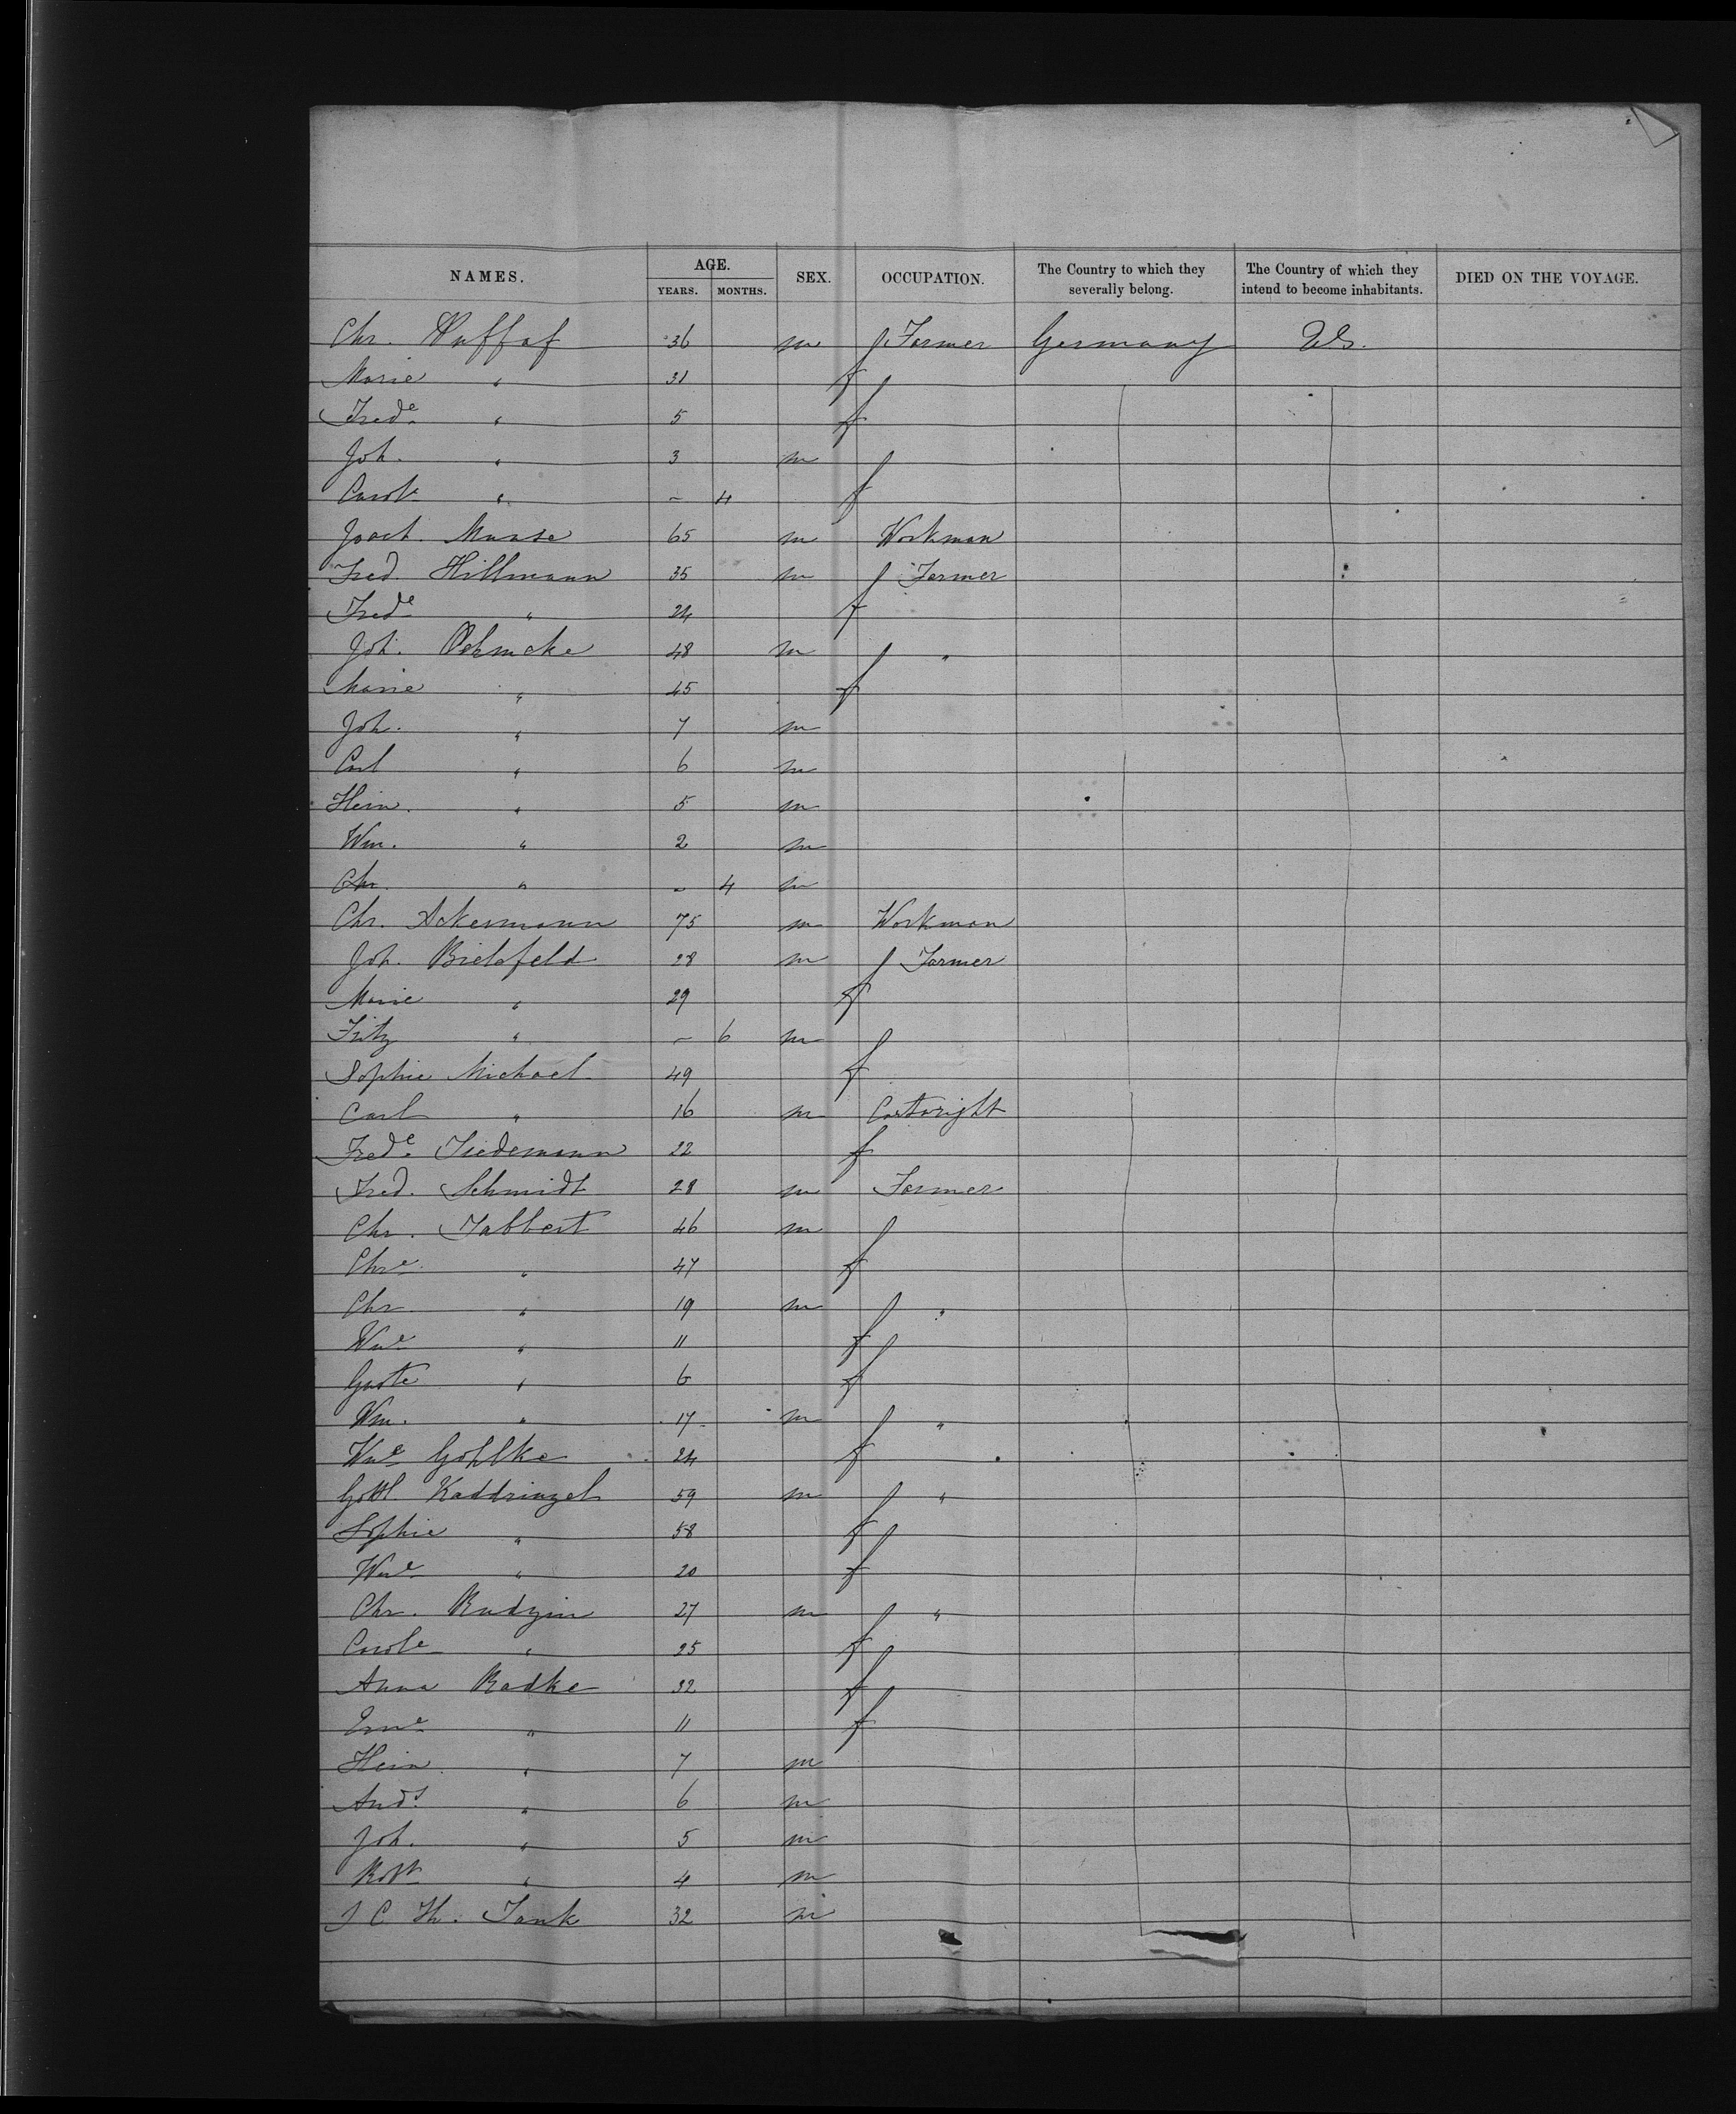 NAMES. AGE. YEARS. MONTHS. SEX. OCCUPATION. The Country to which they severally belong. The Country of which they intend to become inhabitants. DIED ON THE VOYAGE.
Chr. 36 m Farmer Germany U.S.
Marie " 31 f
Fredᵉ " 5 f
Joh. " 3 m
Carolᵉ " - 4 f
Joach. 65 m Workman
Fred. Hillmann 35 m Farmer
Fredᵉ " 24 f
Joh. Oehmcke 48 m "
Marie " 45 f
Joh. " 7 m
Carl " 6 m
Hein. " 5 m
Wm. " 2 m
Chr. " - 4 m
Chr. Ackermann 75 m Workman
Joh. Bielefeld 28 m Farmer
Marie " 29 f
Fritz " - 6 m
Sophie Michael 49 f
Carl " 16 m Cartwright
Fredᵉ Tiedemann 22 f
Fred. Schmidt 28 m Farmer
Chr. Tabbert 46 m
Chrᵉ " 47 f
Chr. " 19 m "
Wmᵉ " 11 f
Gustᵉ " 6 f
Wm. " 17 m "
Wmᵉ Gohlke 24 f
Gottl. Kaddrinzel 59 m "
Sophie " 58 f
Wmᵉ " 20 f
Chr. Rudzin 27 m "
Carolᵉ " 25 f
Anna Radke 32 f
Ernᵉ " 11 f
Hein. " 7 m
Andˢ " 6 m
Joh. " 5 m
Robᵗ " 4 m
J C Th. Tank 32 m